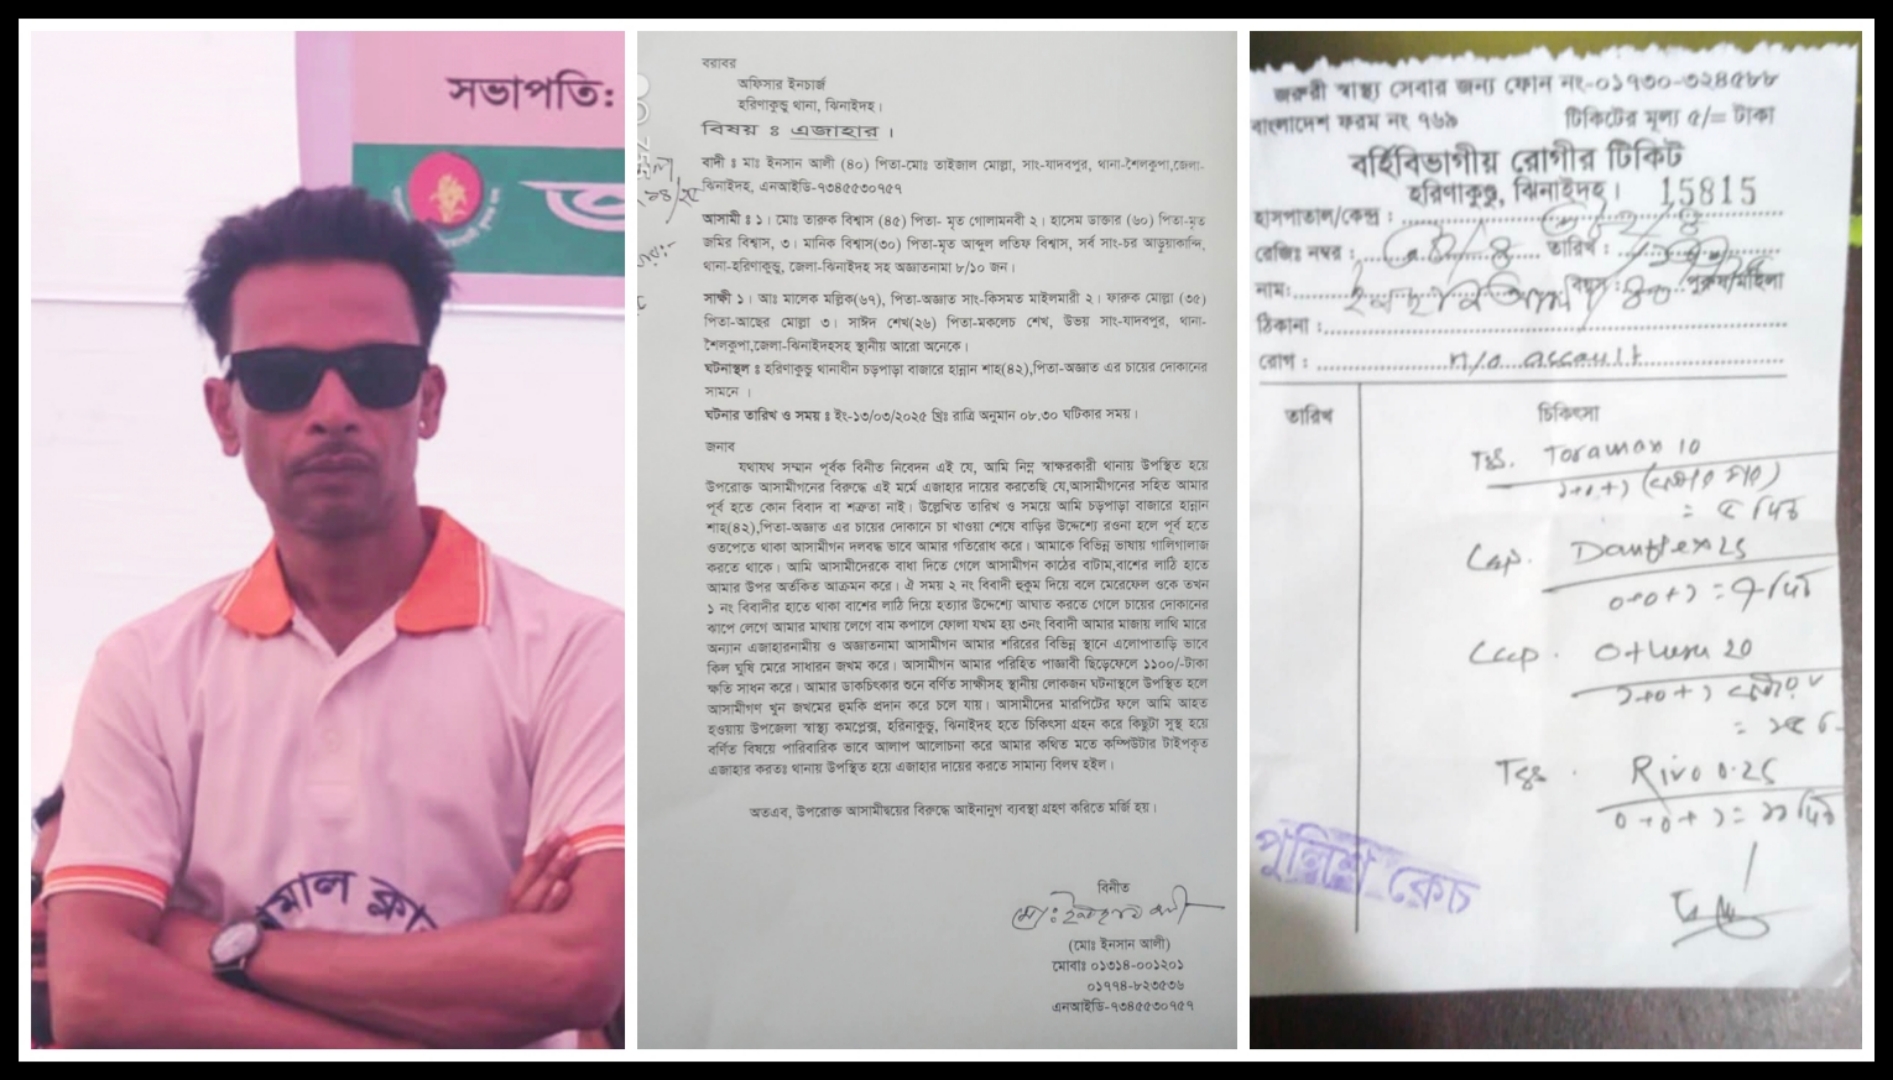 সভাপতি:
বরাবর
অফিসার ইনচার্জ
হরিণাকুন্ডু থানা, ঝিনাইদহ।
বিষয় ঃ এজাহার ।
বাদী ঃ মাঃ ইনসান আলী (৪০) পিতা-মোঃ তাইজাল মোল্লা, সাং-যাদবপুর, থানা-শৈলকুপা,জেলা-
ঝিনাইদহ, এনআইডি-৭৩৪৫৫৩০৭৫৭
আসামী ঃ ১। মোঃ তারুক বিশ্বাস (৪৫) পিতা- মৃত গোলামনবী ২। হাসেম ডাক্তার (৬০) পিতা-মৃত
জমির বিশ্বাস, ৩। মানিক বিশ্বাস(৩০) পিতা-মৃত আব্দুল লতিফ বিশ্বাস, সর্ব সাং-চর আড়ুয়াকান্দি,
থানা-হরিণাকুন্ডু, জেলা-ঝিনাইদহ সহ অজ্ঞাতনামা ৮/১০ জন।
সাক্ষী ১। আঃ মালেক মল্লিক(৬৭), পিতা-অজ্ঞাত সাং-কিসমত মাইলমারী ২। ফারুক মোল্লা (৩৫)
পিতা-আছের মোল্লা ৩। সাঈদ শেখ(২৬) পিতা-মকলেচ শেখ, উভয় সাং-যাদবপুর, থানা-
শৈলকুপা,জেলা-ঝিনাইদহসহ স্থানীয় আরো অনেকে।
ঘটনাস্থল ঃ হরিণাকুন্ডু থানাধীন চড়পাড়া বাজারে হান্নান শাহ(৪২),পিতা-অজ্ঞাত এর চায়ের দোকানের
সামনে ।
ঘটনার তারিখ ও সময় ঃ ইং-১৩/০৩/২০২৫ খ্রিঃ রাত্রি অনুমান ০৮.৩০ ঘটিকার সময়।
জনাব
যথাযথ সম্মান পূর্বক বিনীত নিবেদন এই যে, আমি নিম্ন স্বাক্ষরকারী থানায় উপস্থিত হয়ে
উপরোক্ত আসামীগনের বিরুদ্ধে এই মর্মে এজাহার দায়ের করতেছি যে,আসামীগনের সহিত আমার
পূর্ব হতে কোন বিবাদ বা শত্রুতা নাই। উল্লেখিত তারিখ ও সময়ে আমি চড়পাড়া বাজারে হান্নান
শাহ(৪২),পিতা-অজ্ঞাত এর চায়ের দোকানে চা খাওয়া শেষে বাড়ির উদ্দেশ্যে রওনা হলে পূর্ব হতে
ওতপেতে থাকা আসামীগন দলবদ্ধ ভাবে আমার গতিরোধ করে। আমাকে বিভিন্ন ভাষায় গালিগালাজ
করতে থাকে। আমি আসামীদেরকে বাধা দিতে গেলে আসামীগন কাঠের বাটাম,বাশের লাঠি হাতে
আমার উপর অর্তকিত আক্রমন করে। ঐ সময় ২ নং বিবাদী হুকুম দিয়ে বলে মেরেফেল ওকে তখন
১ নং বিবাদীর হাতে থাকা বাশের লাঠি দিয়ে হত্যার উদ্দেশ্যে আঘাত করতে গেলে চায়ের দোকানের
ঝাপে লেগে আমার মাথায় লেগে বাম কপালে ফোলা যখম হয় ৩নং বিবাদী আমার মাজায় লাথি মারে
অন্যান এজাহারনামীয় ও অজ্ঞাতনামা আসামীগন আমার শরিরের বিভিন্ন স্থানে এলোপাতাড়ি ভাবে
কিল ঘুষি মেরে সাধারন জখম করে। আসামীগন আমার পরিহিত পাঞ্জাবী ছিড়েফেলে ১১০০/-টাকা
ক্ষতি সাধন করে। আমার ডাকচিৎকার শুনে বর্ণিত সাক্ষীসহ স্থানীয় লোকজন ঘটনাস্থলে উপস্থিত হলে
আসামীগণ খুন জখমের হুমকি প্রদান করে চলে যায়। আসামীদের মারপিটের ফলে আমি আহত
হওয়ায় উপজেলা স্বাস্থ্য কমপ্লেক্স, হরিনাকুন্ডু, ঝিনাইদহ হতে চিকিৎসা গ্রহন করে কিছুটা সুস্থ হয়ে
বর্ণিত বিষয়ে পারিবারিক ভাবে আলাপ আলোচনা করে আমার কথিত মতে কম্পিউটার টাইপকৃত
এজাহার করতঃ থানায় উপস্থিত হয়ে এজাহার দায়ের করতে সামান্য বিলম্ব হইল।
অতএব, উপরোক্ত আসামীদ্বয়ের বিরুদ্ধে আইনানুগ ব্যবস্থা গ্রহণ করিতে মর্জি হয়।
বিনীত
মোঃ ইনছান আলী
(মোঃ ইনসান আলী)
মোবাঃ ০১৩১৪-০০১২০১
০১৭৭৪-৮২৩৫৩৬
এনআইডি-৭৩৪৫৫৩০৭৫৭
জরুরী স্বাস্থ্য সেবার জন্য ফোন নং-০১৭৩০-৩২৪৫৮৮
বাংলাদেশ ফরম নং ৭৬৯ টিকিটের মূল্য ৫/= টাকা
বর্হিবিভাগীয় রোগীর টিকিট
হরিণাকুন্ডু, ঝিনাইদহ। 15815
হাসপাতাল/কেন্দ্র :
রেজিঃ নম্বর : তারিখ :
নাম: বয়স : ৪০ পুরুষ/মহিলা
ঠিকানা :
রোগ : n/o assault
তারিখ চিকিৎসা
Tab. Toramax 10
Cap. Danflex 25
Cap. 20
Tab. Rivo 0.25
পুলিশ কেচ